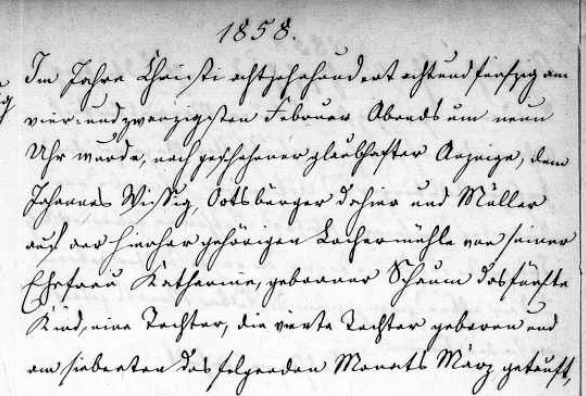 1858.
Im Jahre Christi achtzehnhundert achtundfünfzig am
vier und zwanzigsten Februar Abends um neun
Uhr wurde, nach geschehener glaubhafter Anzeige, dem
Johannes Wissig, Ortsbürger dahier und Müller
auf der hierher gehörigen Lochermühle von seiner
Ehefrau Katharine, geborener Schaum das fünfte
Kind, eine Tochter, die vierte Tochter geboren und
am siebenten des folgenden Monats März getauft,